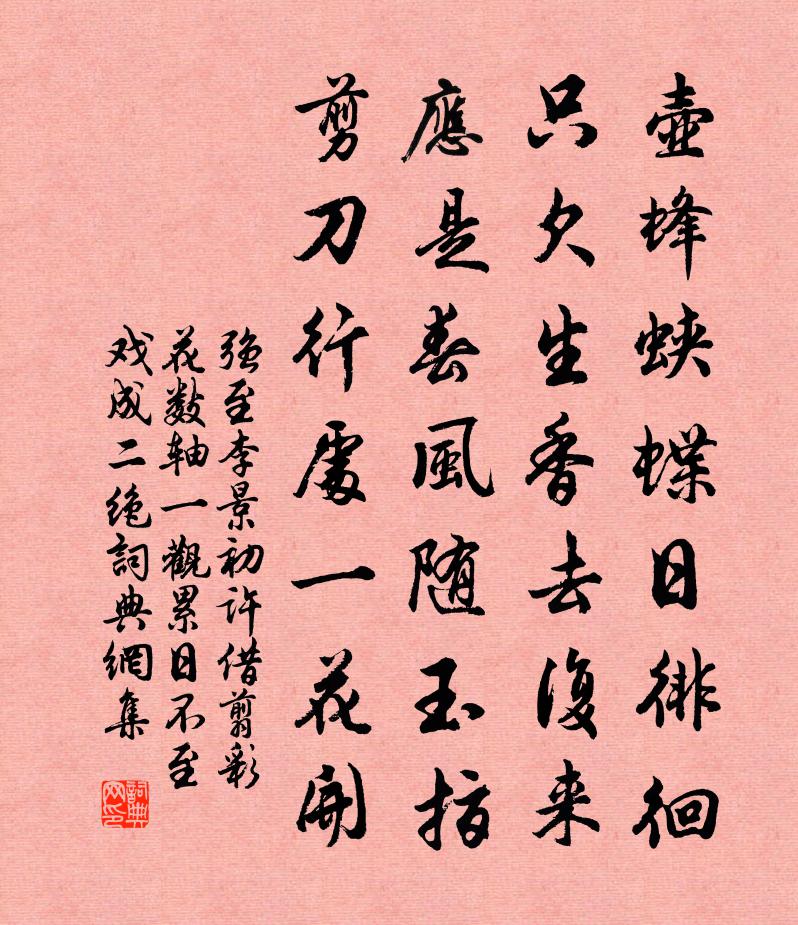 壺蜂蛺蝶日徘徊
只欠生香去復来
應是春風随玉指
剪刀行處一花開
强至李景初许借翦彩
花数轴一觀累日不至
戏成二绝詞典網集
詞典网印